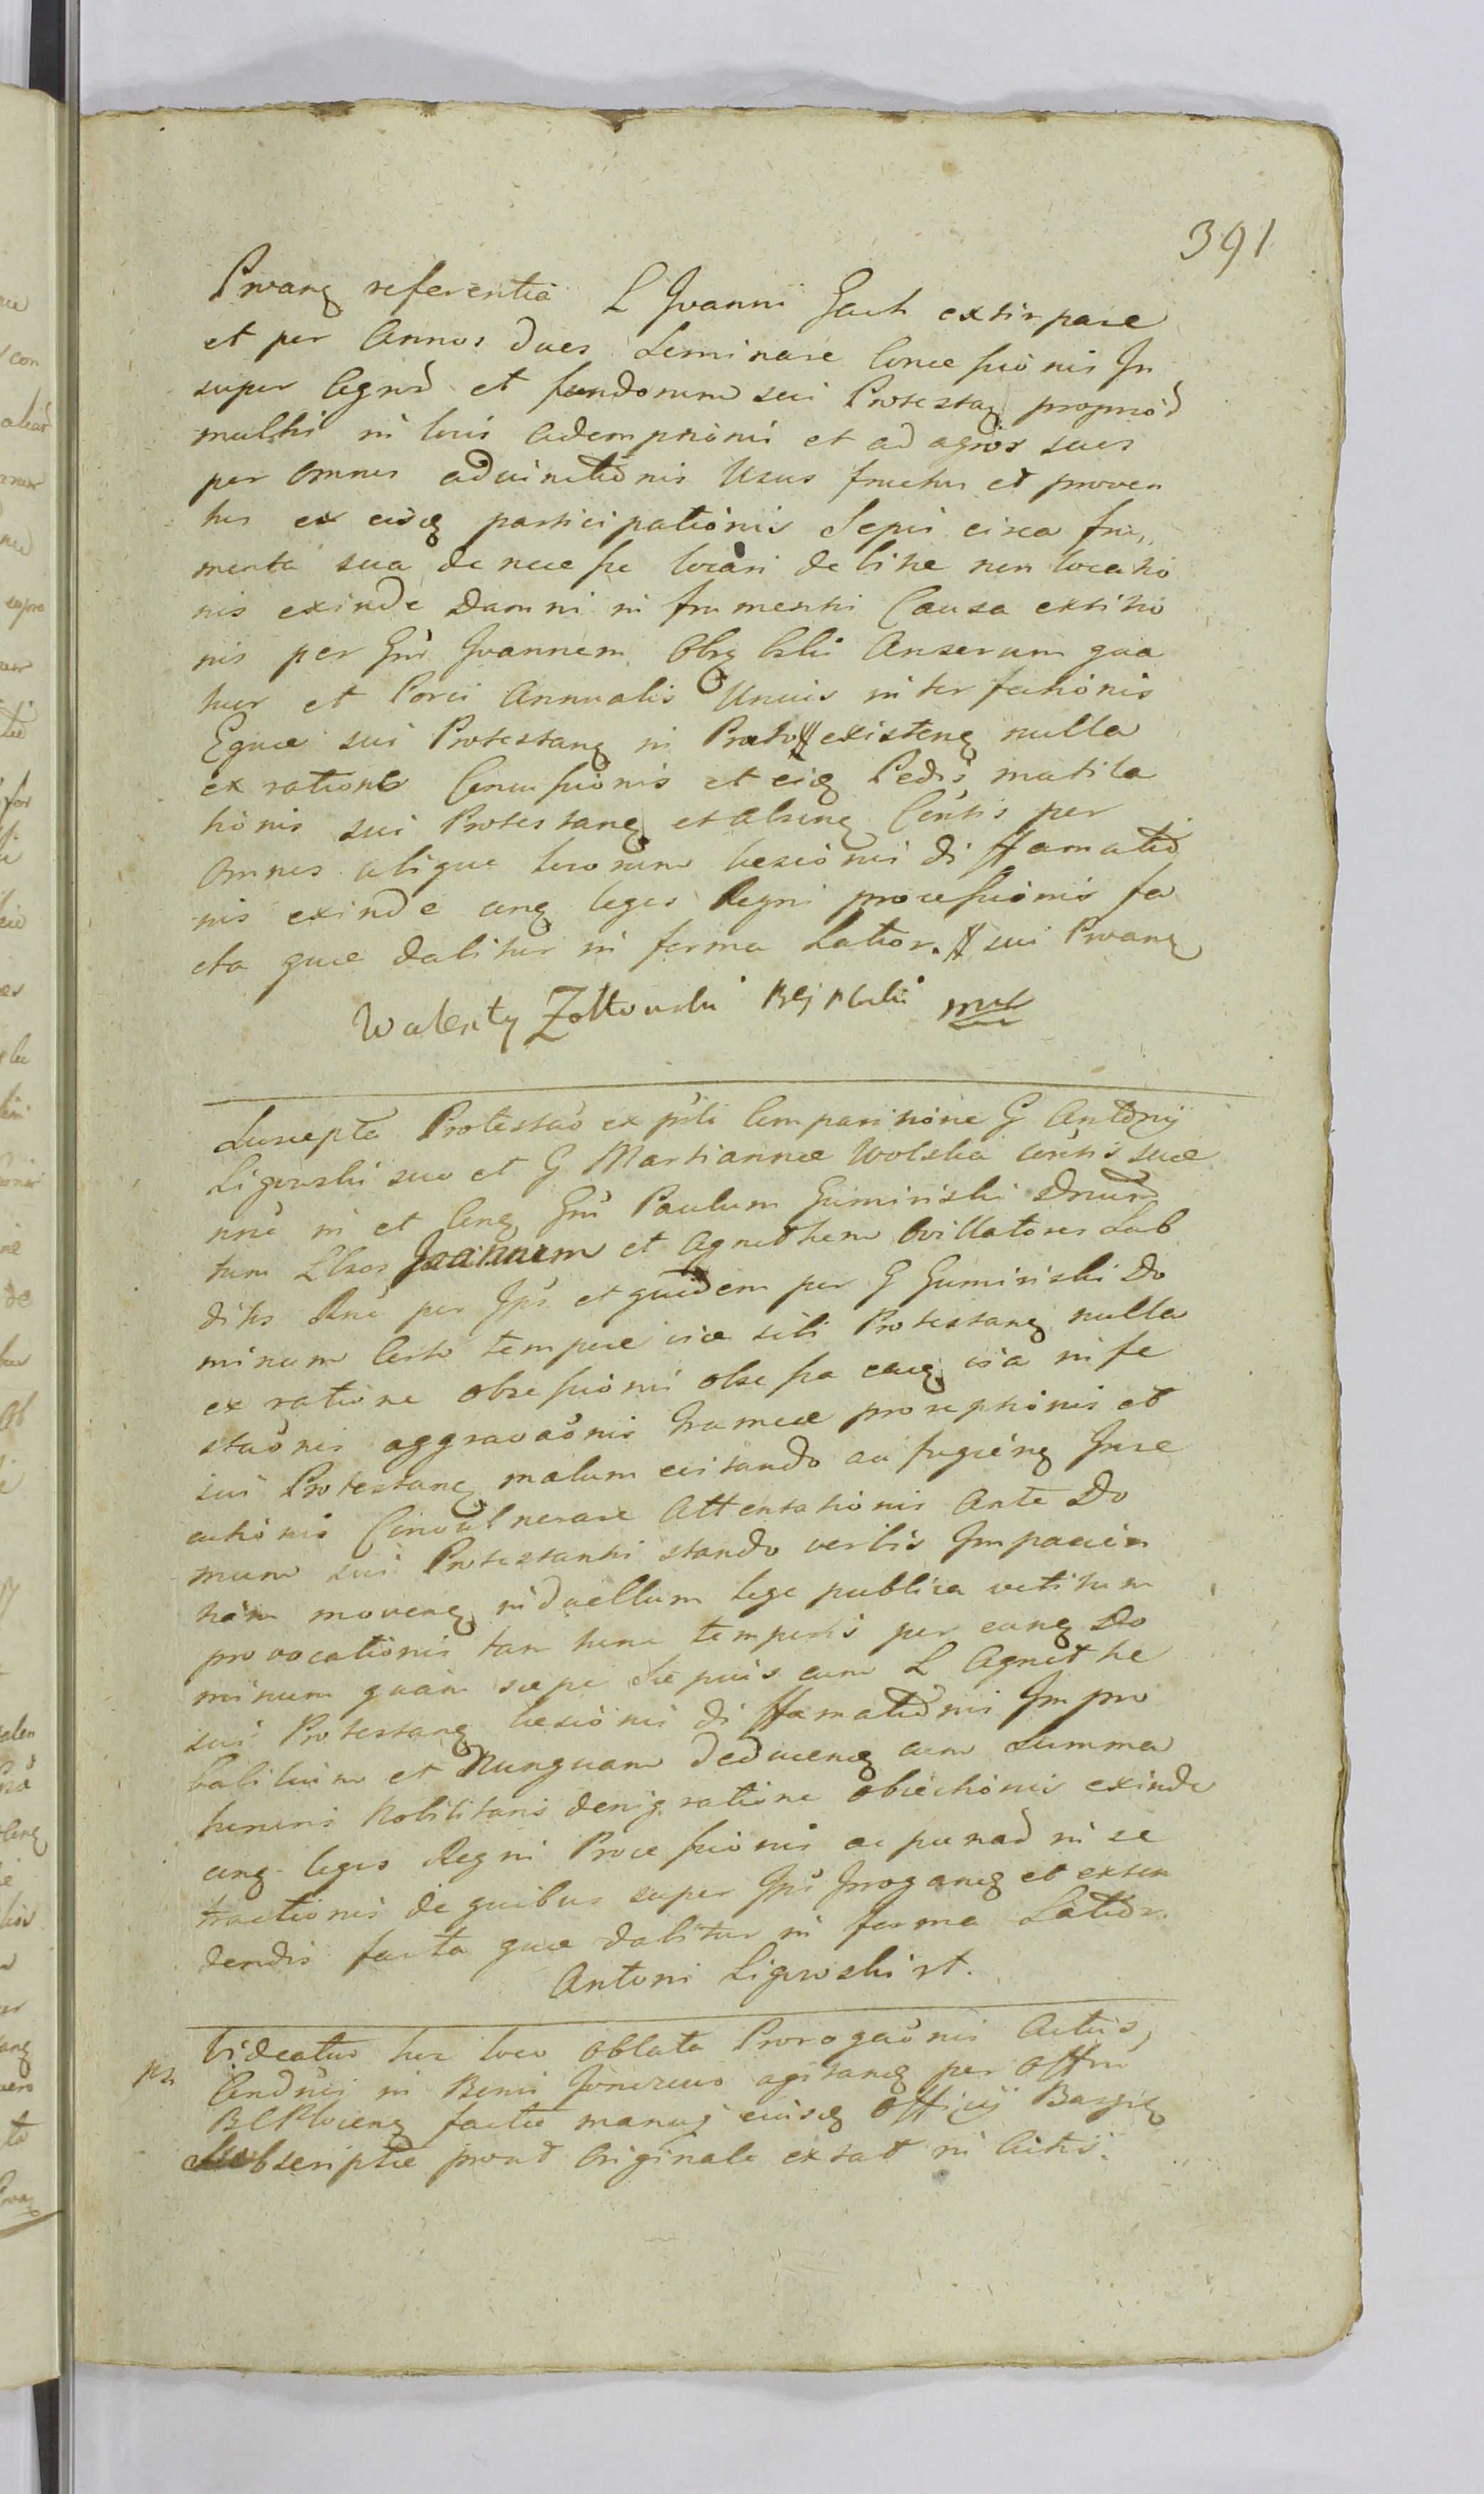 391
Prvang referentia L Joanni Gach extirpare
et per Annos duos Seminare Concessionis In
super Agror et fundorum sui Protestang propriod
multis in locis ademptionis et ad agros suos
per omnes aduinctionis Usus fructus et proven
tus ex eisq participationis Sepis circa fru„
menta sua de necesse locari debitae non locatio
nis exinde Damni in frumentis Causa extitio
nis per Gnr Joannem Anserum qua
tuor et Porci Annualis Unius interfectionis
Equae sui Protestang in Prato existeng nulla
ex ratione Concussionis et eiq Pedis mutila
tionis sui Protestang et Consortis per
omnes ubique locorum laesionis diffamatio
nis exinde cnq leges Regni processionis fa
cta quae dabitur in forma Latior. sui Prvang
Walenty Zołtowski mp
Suscepta Protestao ex psnli Comparitione G Antonij
Ligowski suo et G Martiannae Wolska Contis suae
nne in et Cnq Gnr Paulum Gumiński Dnum
tum Lbros Joannem et Agnethem Ovillatores Sub
ditis Rne per Ips et quidem per G Gumiński Do
minum Certo tempore viae sibi Protestang nulla
ex ratione obsessionis obsessa eaq via infe
staonis aggravaonis frameae proreptionis et
sui Protestang malum evitando aufugieng Inse
cutionis Convulnerare Attentationis Ante Do
mum sui Protestantis stando verbis Impacien
tiam moveng in duellum lege publica vetitum
provocationis tam tunc temporis per eunq Do
minum quam saepe saepius cum L Agnethe
sui Protestang laesionis diffamationis Impro
babilium et Nunquam deduceng cum Summa
honoris Nobilitaris denigratione obiectionis exinde
cnq leges Regni Processionis ac paenad in se
tractionis de quibus super Ips Irrogang et exten
dendis facta quae dabitur in forma Latior.
Antoni Ligowski rt.
Videatur hoc loco Oblata Prorogaonis Actus,
Condscii in Bonis agitang per Offm
factae manuq eiusq Officij
Subscriptae prout Originale extat in Actis.